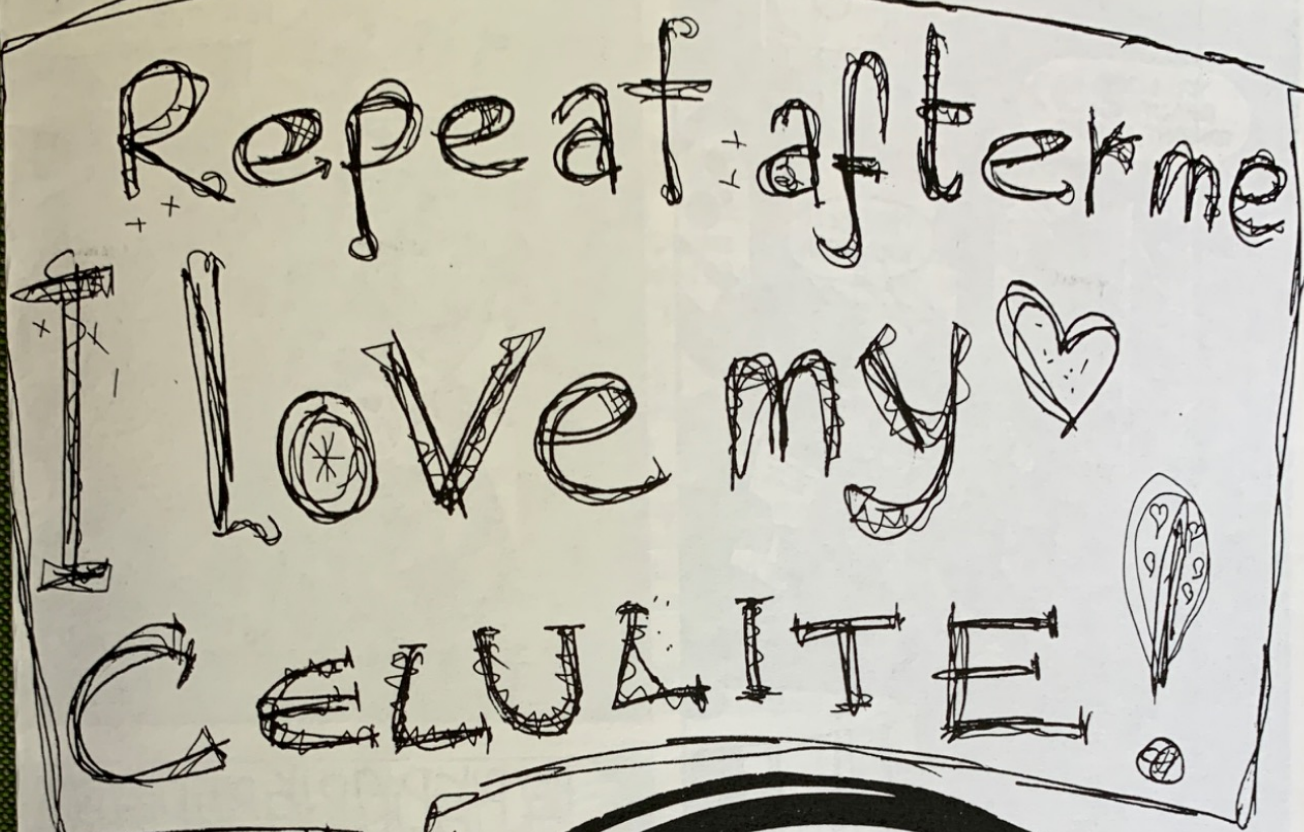 Repeat after me
I love my
CELULITE!